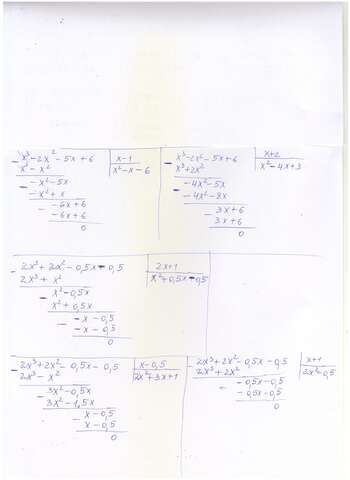 x³-2x²-5x+6 | x-1
x³-x² | x²-x-6
-x²-5x
-x²+x
-6x+6
-6x+6
0
x³-2x²-5x+6 | x+2
x³+2x² | x²-4x+3
-4x²-5x
-4x²-8x
3x+6
3x+6
0
2x³+2x²-0,5x-0,5 | 2x+1
2x³+x² | x²+0,5x-0,5
x²-0,5x
x²+0,5x
-x-0,5
-x-0,5
0
2x³+2x²-0,5x-0,5 | x-0,5
2x³-x² | 2x²+3x+1
3x²-0,5x
3x²-1,5x
x-0,5
x-0,5
0
2x³+2x²-0,5x-0,5 | x+1
2x³+2x² | 2x²-0,5
-0,5x-0,5
-0,5x-0,5
0